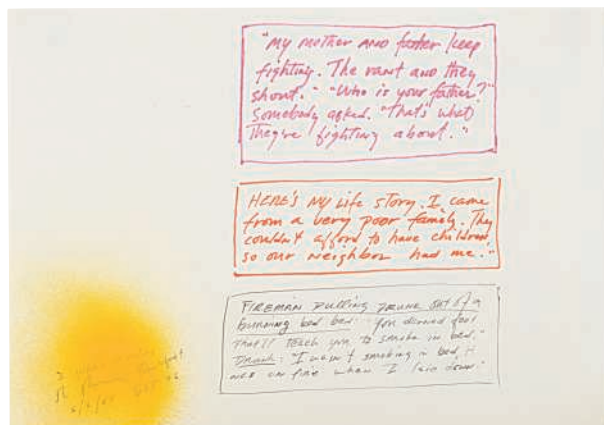 "My mother AND father keep
fighting. The rant and they
shout." "Who is your father?"
Somebody asked. "That's what
They're fighting about."
HERE'S MY Life story. I came
from a very poor family. They
couldn't afford to have children,
so our neighbor had me."
FIREMAN PULLING DRUNK OUT of a
burning bed: You darned fool
That'll TEACH you to smoke in bed."
Drunk: "I wasn't smoking in bed, it
was on fire when I lain down."